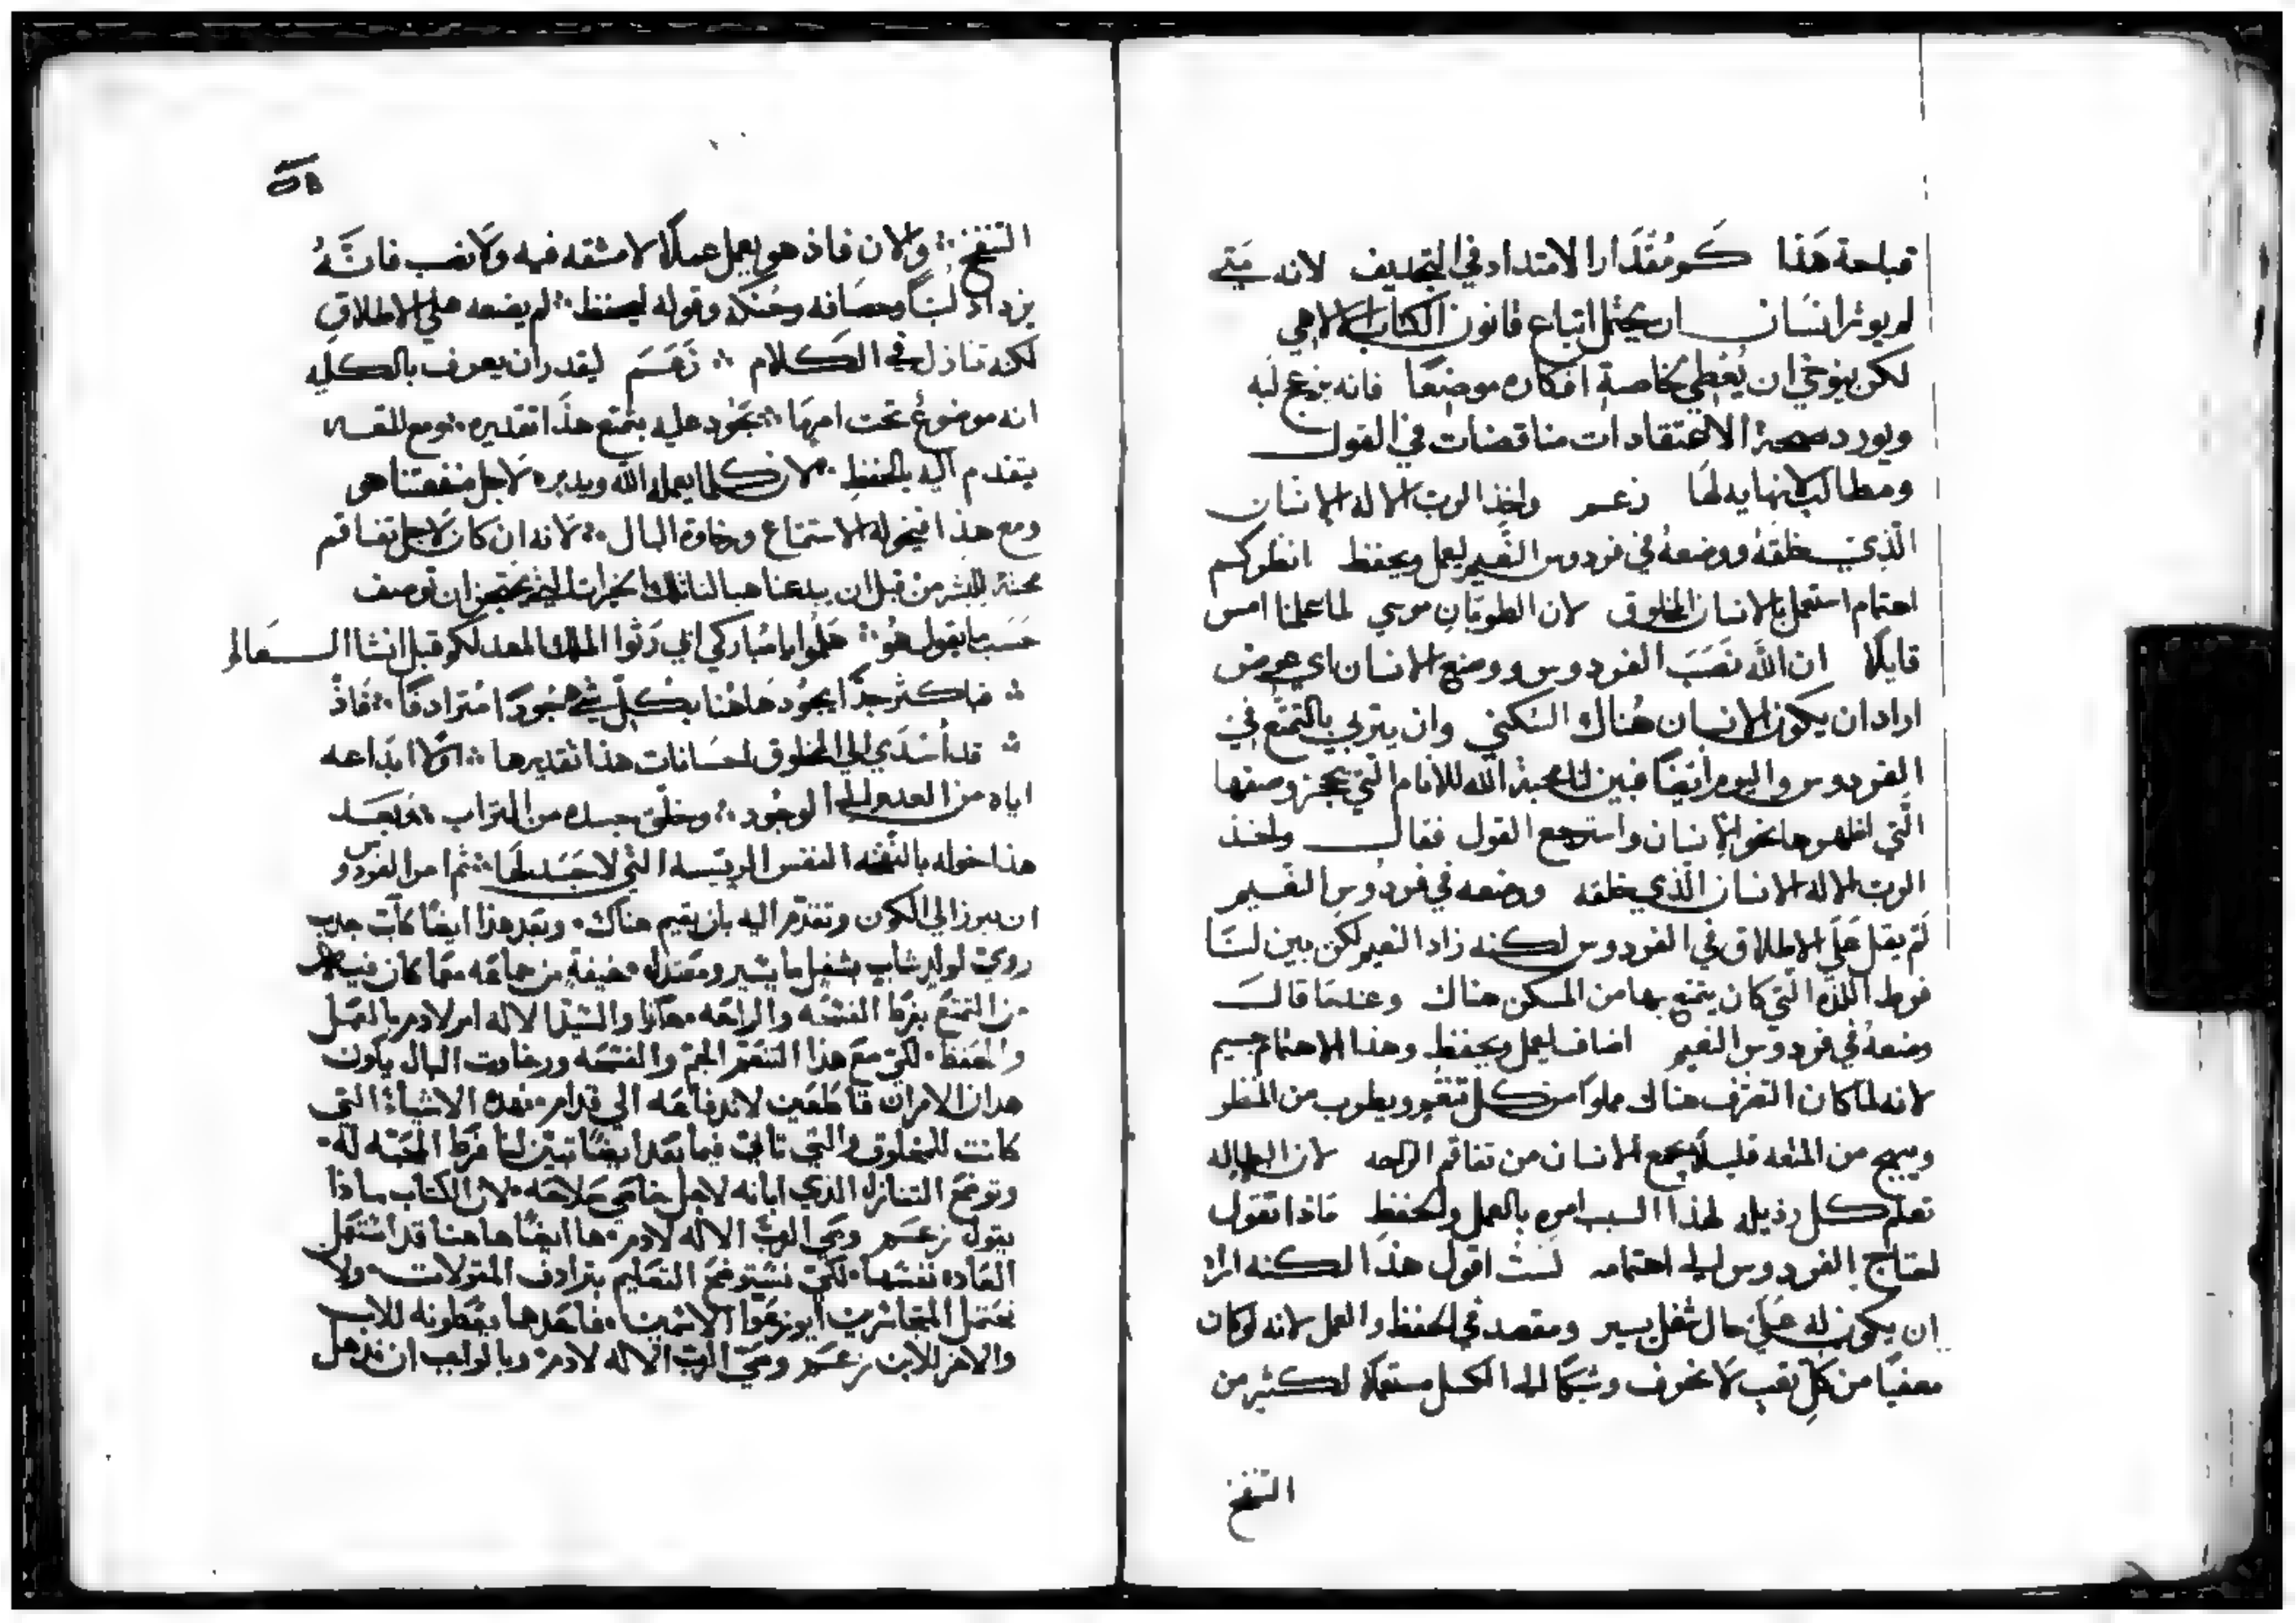 قباحة هَذا كَم مُقْدَار الامتداد في التجديف لانه مَتي
لم يوثر انسَان ان يحتمل اتباع قانون الكتاب الالاهي
لكن ينوخي ان يُعْطي لخاصة افكاره موضعًا فانه يزعج لبه
ويورد صحة الاعتقادات مناقضات في القول
ومطالب لانهايه لهَا زعم واخذ الرب الاله الانسَان
الّذي خلقهُ ووضعهُ في فردوس النَّعيم ليعمل ويحفظ انظر كم
اهتمام استعمل بالانسان المخلوق لان الطوبان موسي لما عملنا امس
قايلًا ان الله نَصَبَ الفردوس ووضع الانسان اي عوض
اراد ان يكون الانسان هُناك السَكني وان يتربي بالتمتّع في
الفردوس واليوم ايضًا فبين لنا محبة الله للانام التي يعجز وصفها
الّتي اظهرها نحو الانسان واسترجع القول فقال واخذ
الرب الاله الانسان الّذي خلقه ووضعه في فردوس النعيم
لَم يقل عَلَي الاطلاق في الفردوس لكنه زاد النعيم لكي يبين لنَا
فرط اللذه الّتي كان يتمتع بها من المسكن هناك وعندمَا قالَ
وضعهُ في فردوس النعيم اضاف ليعمل ويحفظ وهذا الاهتمام جسيم
لانه لما كان التصرف هنالك مملوًا من كل تنعّم ويطرب من النظر
ويبهج من المتعه قليلًا يجمع الانسان من تفاقم الراحه لان البطاله
تعلم كل رذيله لهذا السبب امره بالعمل والحفظ فاذا تقول
احتاج الفردوس الي اهتمامه لستُ اقول هذا لكنه اراد
ان يكون له علي حال شغل يسير ومقصد في الحفظ والعمل لانه لو كان
معفيًا من كلّ تعب لانحرف وشيكًا الي الكسل مستعملًا لكثير من
التفنخ
٥١
التفنخ والان فاذ هو يعمل عملًا لا مشقه فيه ولا نصب فانَّهُ
يزداد لبًا وحصَافه وحُنكه وقوله ليحفظ لم يضعه علي الاطلاق
لكنه تنازل في الكلام زَعَمَ ليقدر ان يعرف بالكليه
انه موضوعٌ تحت امرهَا بجُود عليه بتمتع هذَا تقديره ومع المتعه
يتقدم اليه بالحفظ لان كلما يعمله الله ويدبره لاجل منفعتنا هو
ومع هذا فيخوله الاستمتاع ورخاوة البال لانه ان كان لاجل تفاقم
محبته للبشر من قبل ان يبدعنا هيا لنا تلك الخيرات التي يعجز ان توصف
حَسَب ما يقول هُو هَلموا يا مباركي ابي رَثوا الملك المعد لكم قبل انشا العالم
فباكثر جدًّا يجُود هَاهُنا بكلّ شيء جُودًا مترادفًا فاذ
قد أسْدَي الي المخلوق احسَانات هذا تقديرها اوّلًا ابدَاعه
اياه من العدم الي الوجُود وخلق جسده من التراب وبَعد
هذا خوله بالنفخه النفس الرييسه التي لا جَسَد لهَا ثم امر الفردوس
ان يبرز الي الكون وتقدّم اليه بان يقيم هناك وبَعد هذا ايضًا كأب حدب
رويّ لولدٍ شاب بشغل ما يسير ومعتدل خيفةً من جماحه ممَا كان فيه
من التمتع بفرط الفسْحَه والراحَه هكذا والسيّد الاله امر لادم بالعَمل
والحفظ لكي مَع هذا التنعّم الجمّ والفسحَه ورخاوت البال يكون
هدان الامران قاطعَين لاندفاعَه الي قدام فهذه الاشياءُ التي
كانت للمخلوق والتي تاتي فيما بَعد ايضًا تبيّن لنا فَرط المحَبّه له
وتوضح التنازل الذي ابانه لاجل خاصي صَلاحَه لان الكتاب ماذا
يقول زعَم ومَي الرب الاله لادم ها ايضًا هاهنا قد استعَمل
العَاده نفسَها لكي نستوضحَ التعَليم بترادف المقولات ولا
نحتمل المتجاسرين ان يوزعوا الاسمين فاحَدهما يعَطونه للاب
والاخر للابن زعَم ومَي الرب الاله لادم وبالواجب ان نذهل